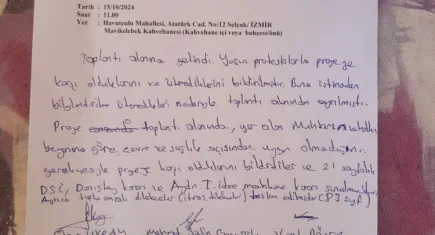 Tarih : 15/10/2024
Saat : 11.00
Yer : Havutçulu Mahallesi, Atatürk Cad. No:12 Selçuk/ İZMİR
Mavikelebek Kahvehanesi (Kahvehane içi veya bahçesi/önü)
Toplantı alanına gelindi. Yoğun protestolarla projeye
karşı olduklarını ve istemediklerini bildirdiler. Buna istinaden
bilgilendirilme istemedikleri nedeniyle toplantı alanından ayrılmıştır.
Proje toplantı alanında, yer alan Muhtarın ve halkın
beyanına göre çevre ve sağlık açısından uygun olmadığını
gerekçesiyle projeye karşı olduklarını bildirdiler ve 21 sayfalık
DSİ, Danıştay kararı ve Aydın 1. idare mahkeme kararı sunulmuştur.
Ayrıca toplu imzalı dilekçeler (itiraz dilekçeleri) teslim edilmiştir (82 sayfa)